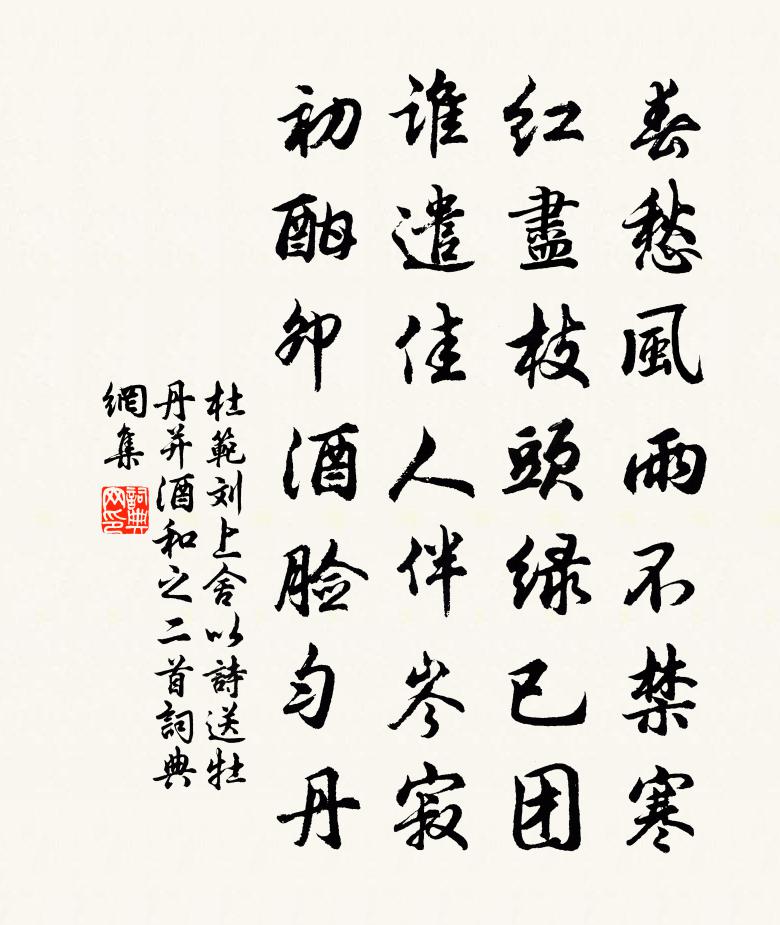 春愁風雨不禁寒
红盡枝頭緑已团
谁遣佳人伴岑寂
初酣卯酒脸匀丹
杜範刘上舍以詩送牡
丹并酒和之二首詞典
網集
詞典
网印